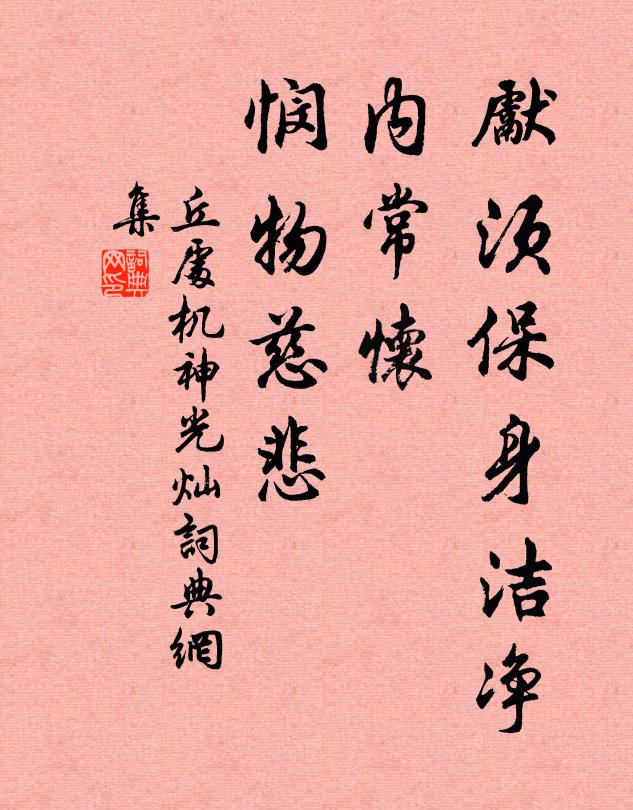 献须保身洁净
内常懷
悯物慈悲
丘處机神光灿詞典網
集
詞典
网印